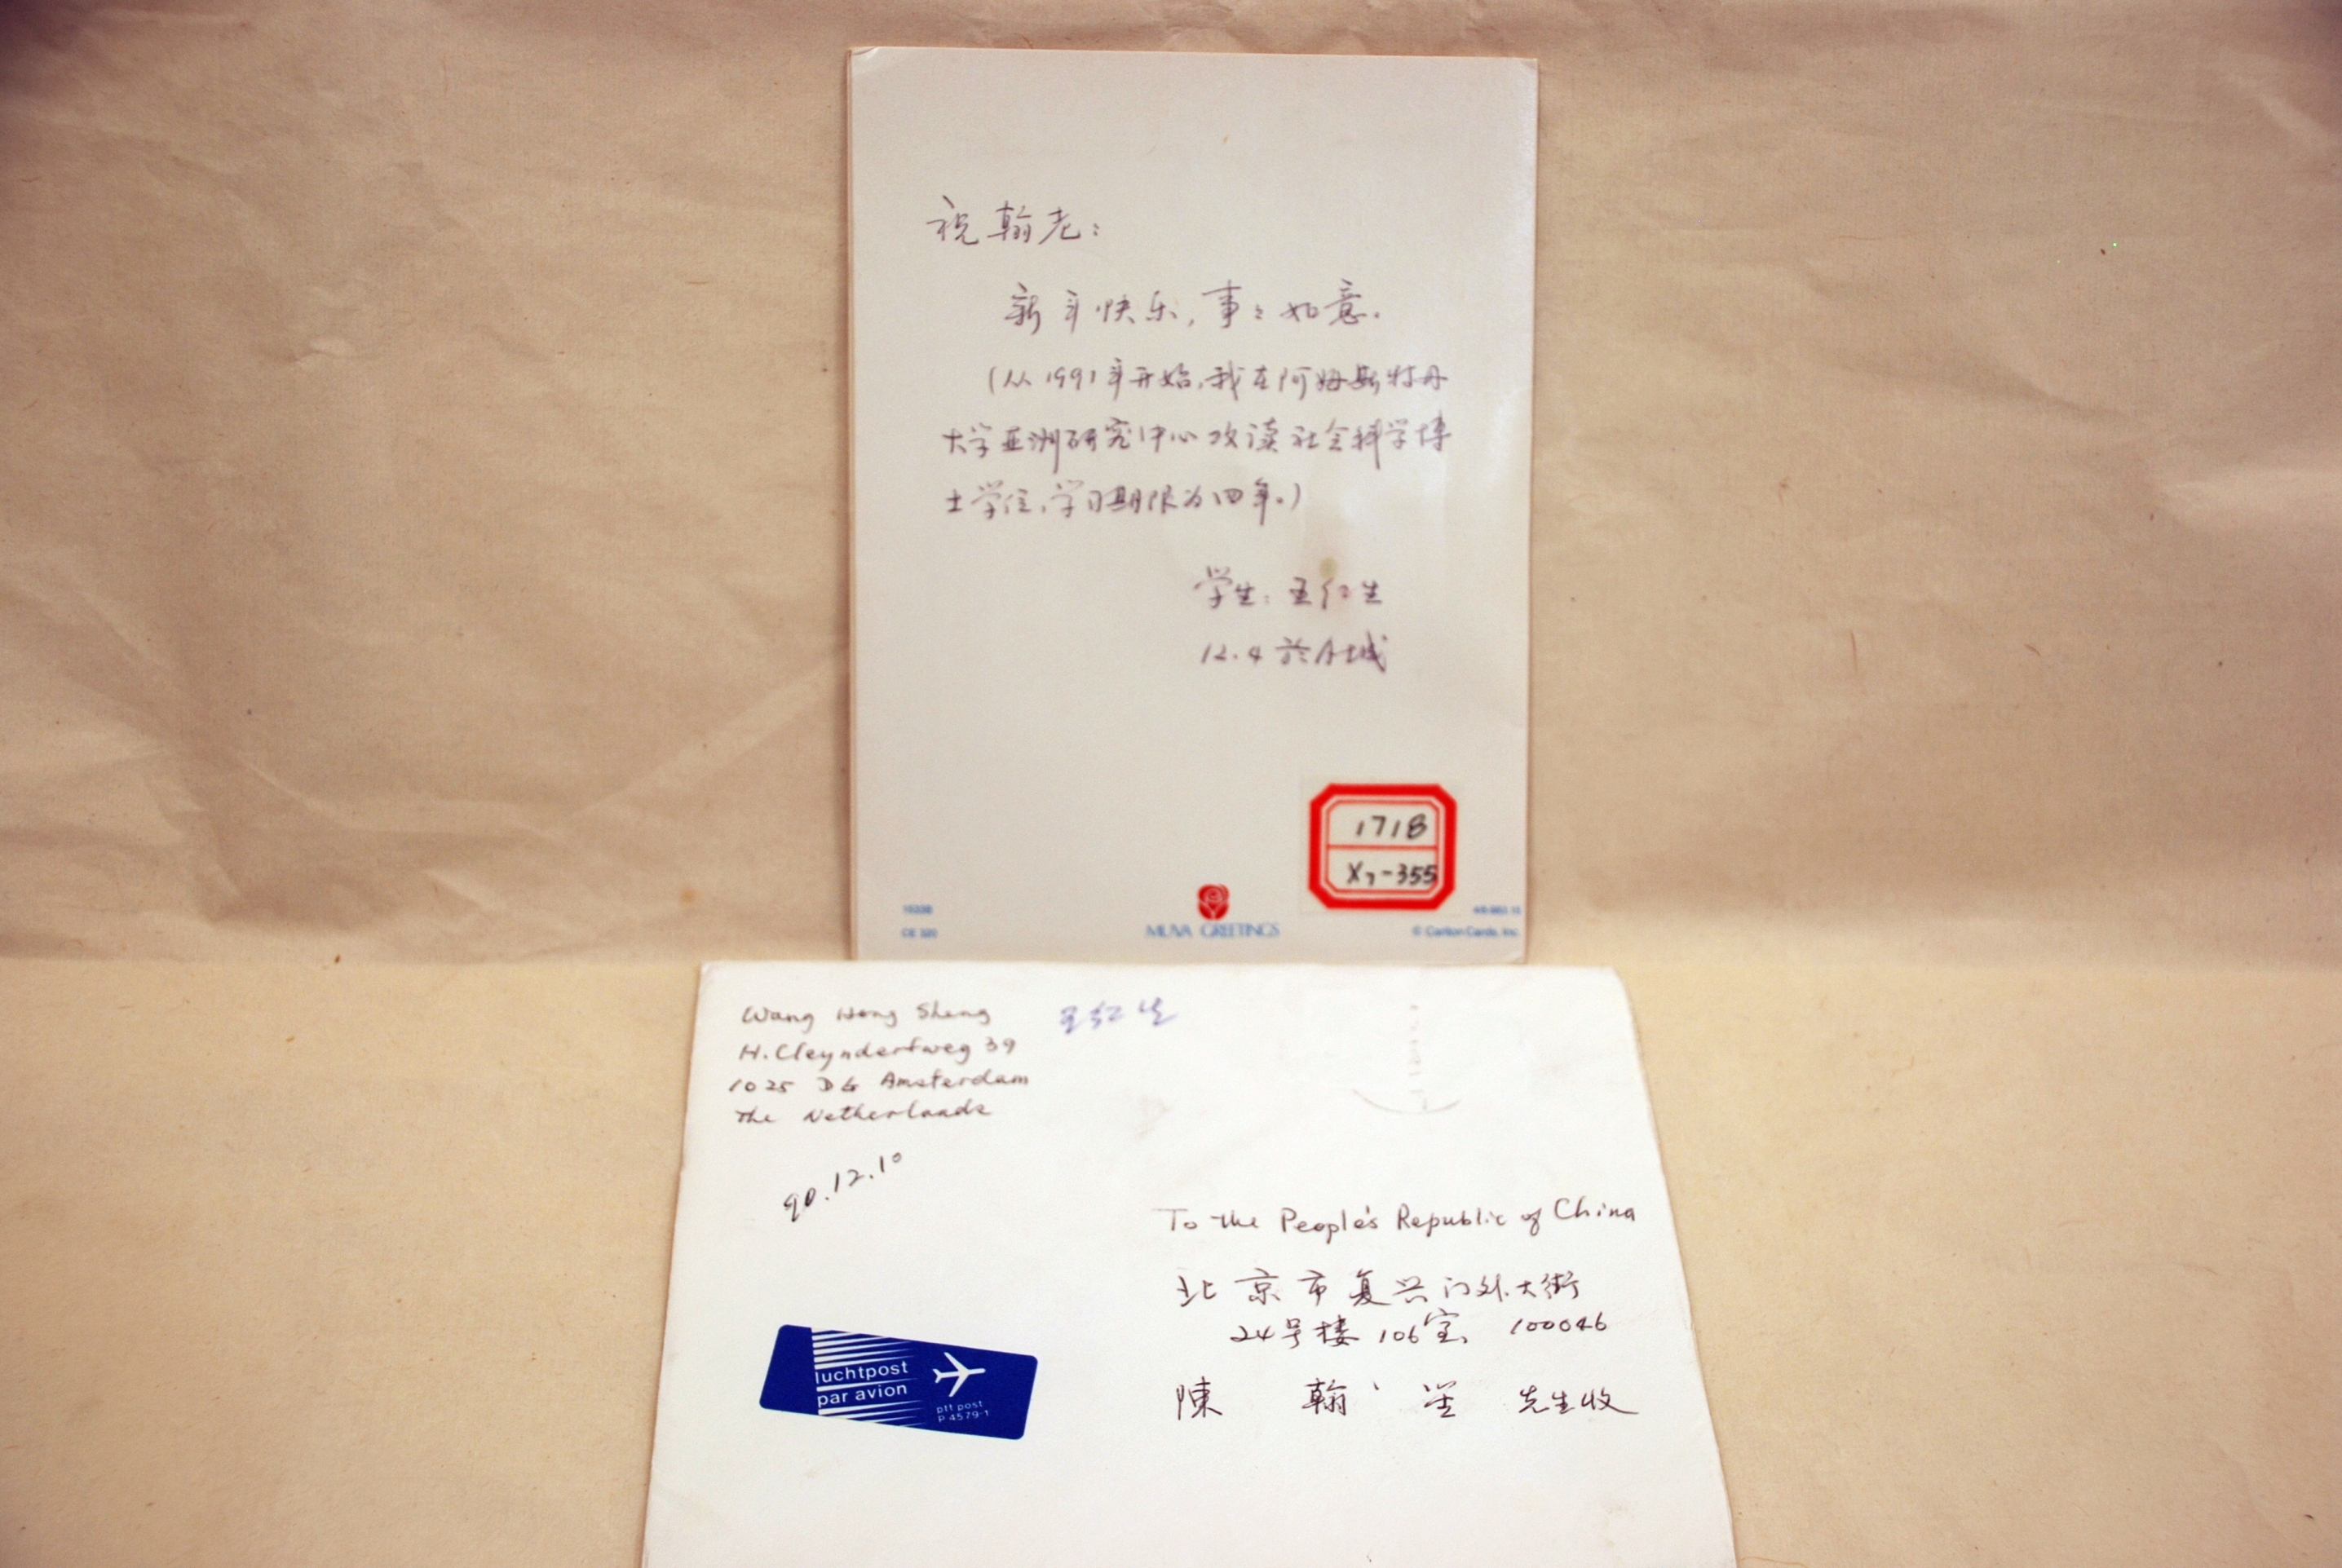 祝翰老:
新年快乐,事々如意。
(从1991年开始,我在阿姆斯特丹
大学亚洲研究中心攻读社会科学博
士学位,学习期限为四年。)
学生:王红生
12.4 於A城
1718
X7-355
MUVA GREETINGS
© Carlton Cards, Inc.
Wang Hong Sheng
王红生
H. Cleyndertweg 39
1025 DG Amsterdam
The Netherlands
90.12.10
To the People's Republic of China
北京市复兴门外大街
24号楼106室, 100046
陳翰笙 先生收
luchtpost
par avion
ptt post
P 4579-1